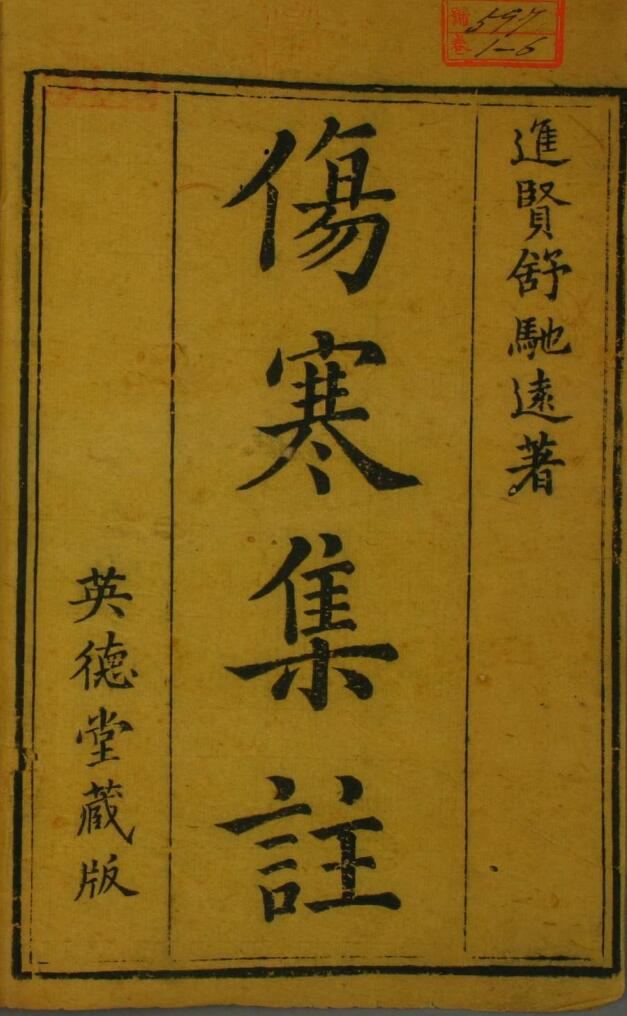 號 597
卷 1-6
進賢舒馳遠著
傷寒集註
英德堂蔵版